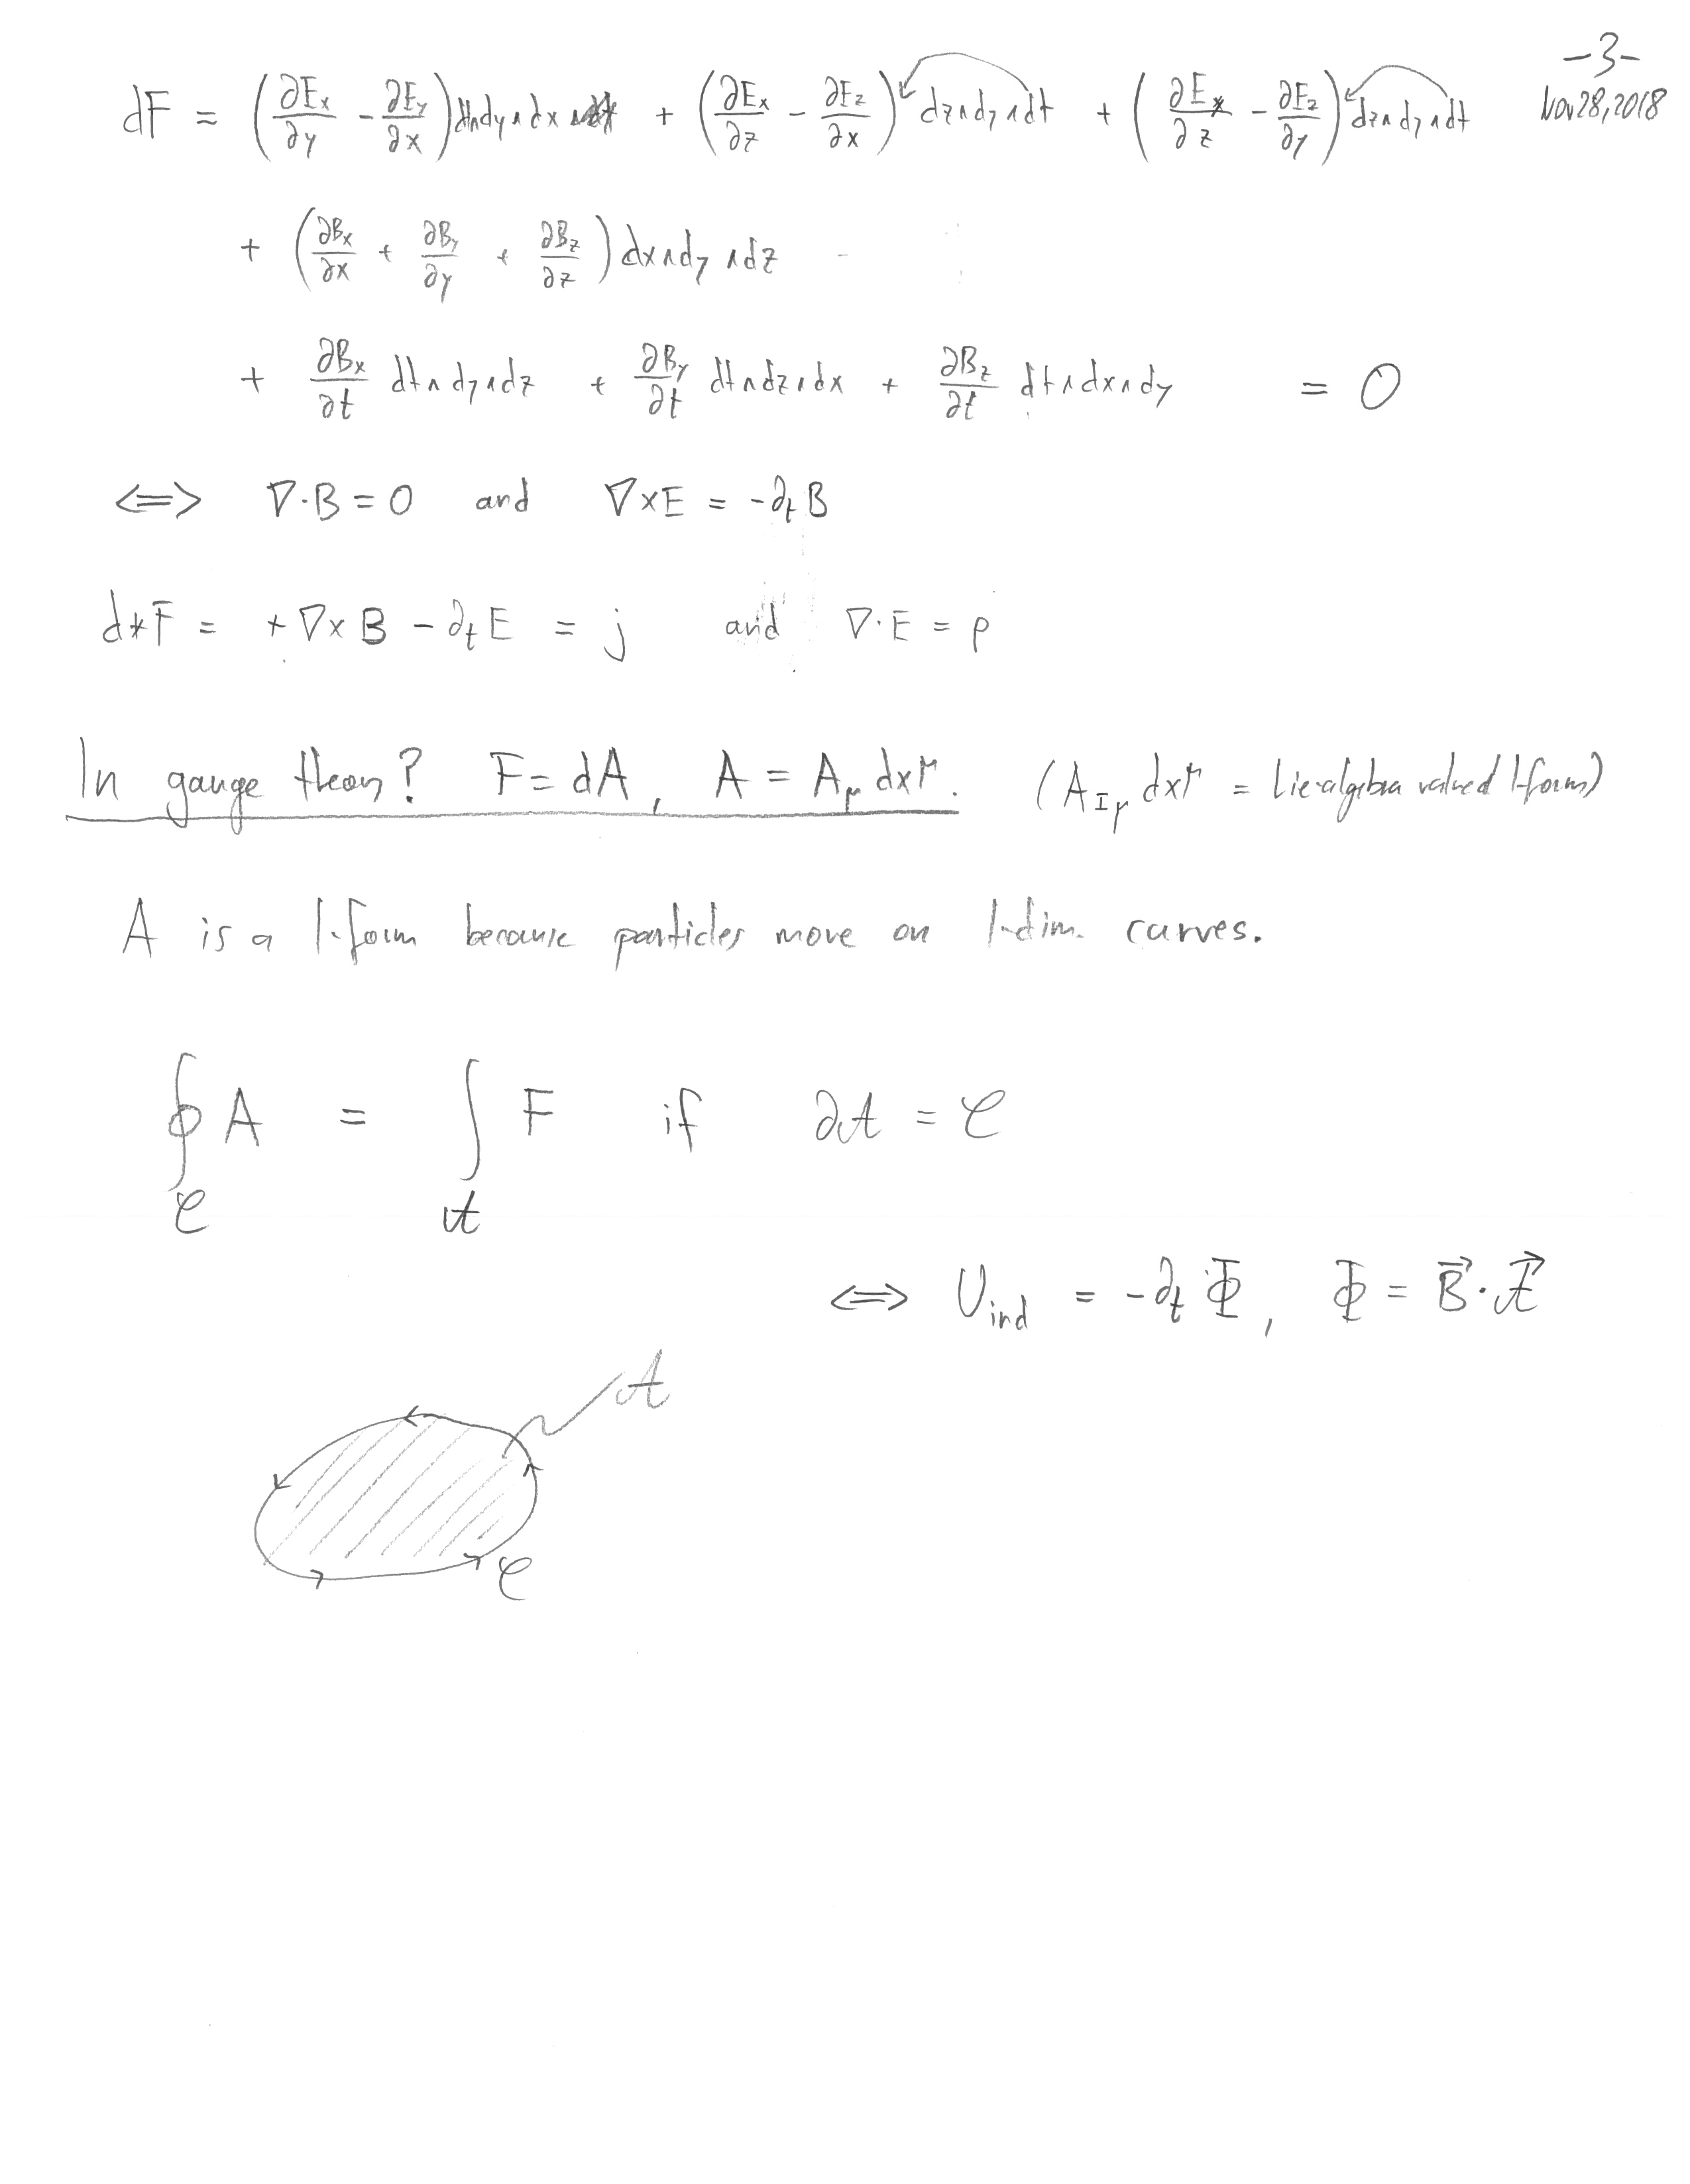 -3-
Nov 28, 2018
dF = (∂Ex/∂y - ∂Ey/∂x) dt∧dy∧dx + (∂Ex/∂z - ∂Ez/∂x) dz∧dy∧dt + (∂Ex/∂z - ∂Ez/∂y) dz∧dy∧dt
+ (∂Bx/∂x + ∂By/∂y + ∂Bz/∂z) dx∧dy∧dz
+ ∂Bx/∂t dt∧dy∧dz + ∂By/∂t dt∧dz∧dx + ∂Bz/∂t dt∧dx∧dy = 0
⟺ ∇·B = 0 and ∇×E = -∂ₜB
d*F = +∇×B - ∂ₜE = j and ∇·E = ρ
In gauge theory? F = dA, A = A_μ dx^μ. (A_{Iμ} dx^μ = Lie-algebra valued 1-form)
A is a 1-form because particles move on 1-dim. curves.
∮_𝒞 A = ∫_𝒜 F if ∂𝒜 = 𝒞
⟺ U_ind = -∂ₜΦ, Φ = B⃗·𝒜⃗
𝒜
𝒞